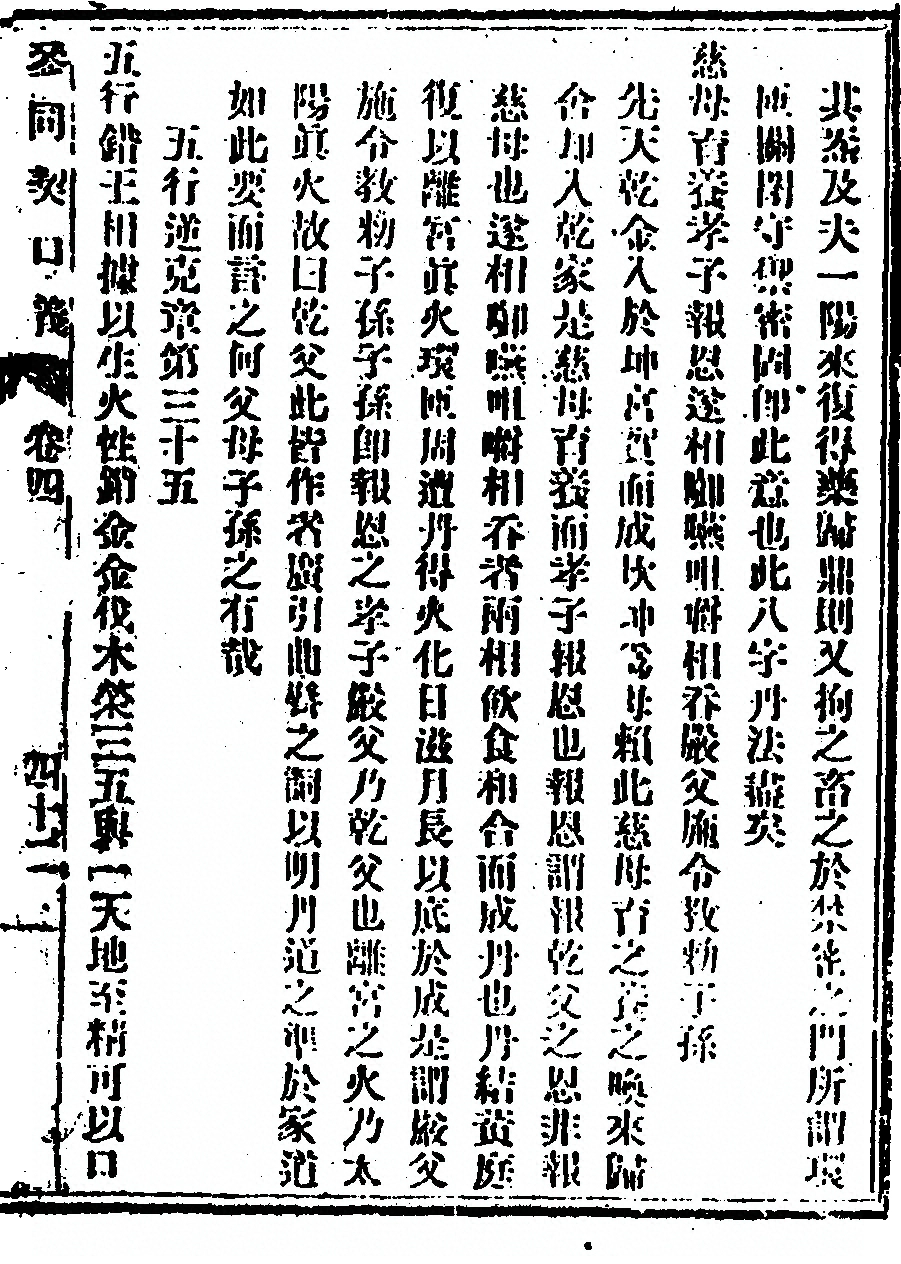 其炁及夫一陽來復得藥歸鼎則又拘之畜之於禁密之門所謂環
匝關閉守禦密固即此意也此八字丹法盡矣
慈母育養孝子報恩遂相啣嚥咀嚼相吞嚴父施令教勑子孫
先天乾金入於坤宮實而成坎坤為母賴此慈母育之養之喚來歸
舍却入乾家是慈母育養而孝子報恩也報恩謂報乾父之恩非報
慈母也遂相啣嚥咀嚼相吞者兩相飲食和合而成丹也丹結黃庭
復以離宮眞火環匝周遭丹得火化日滋月長以底於成是謂嚴父
施令教勑子孫子孫即報恩之孝子嚴父乃乾父也離宮之火乃太
陽眞火故曰乾父此皆作者廣引曲譬之詞以明丹道之準於家道
如此要而言之何父母子孫之有哉
五行逆克章第三十五
五行錯王相據以生火性銷金金伐木榮三五與一天地至精可以口
參同契口義 卷四 四十一